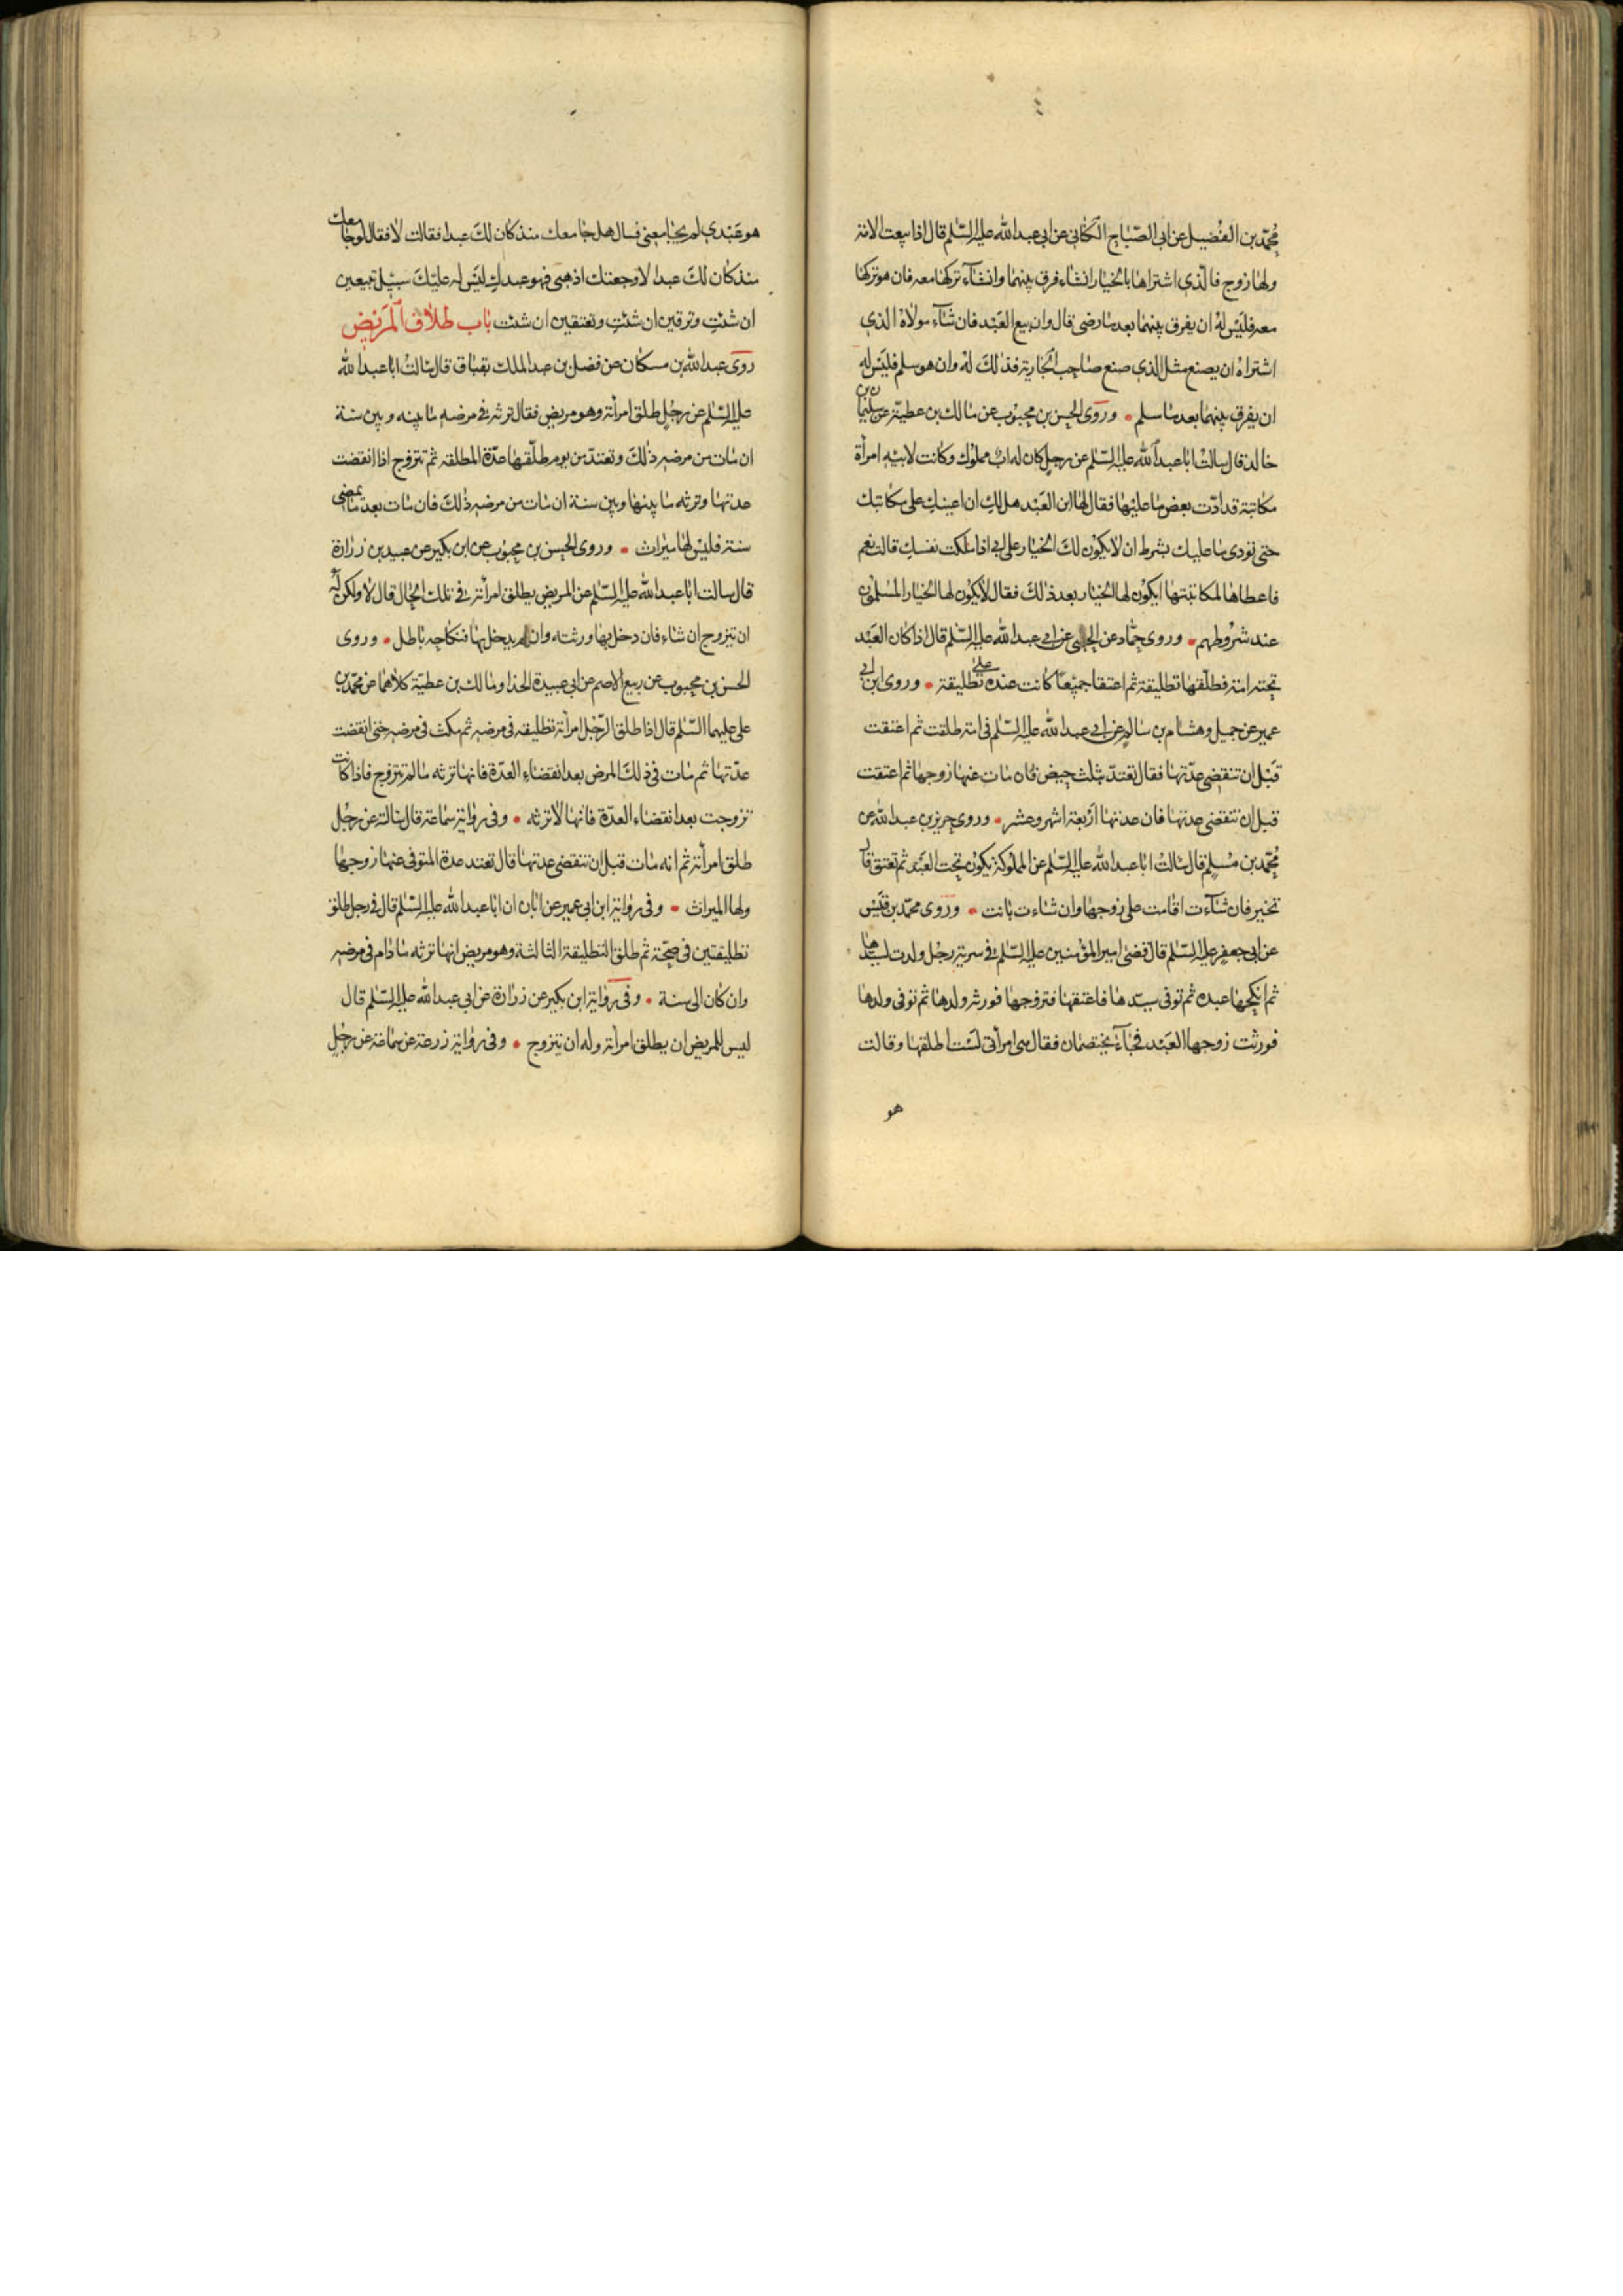 محمد بن الفضيل عن ابى الصّباح الكنانى عن ابى عبدالله عليه السّلم قال اذا بيعت الامة
ولها زوج فالّذى اشتراها بالخيار ان شاء فرق بينهما وان شآء تركها معه فان هو تركها
معه فليس له ان يفرق بينهما بعد ما رضى قال وان بيع العبد فان شآء مولاه الذى
اشتراه ان يصنع مثل الذى صنع صاحب الجارية فذلك له وان هو سلم فليس له
ان يفرق بينهما بعد ما سلم • وروى الحسن بن محبوب عن مالك بن عطية عن سليمان بن
خالد قال سالت ابا عبد الله عليه السّلم عن رجل كان له اب مملوك وكانت لابيه امرأة
مكاتبة قد ادّت بعض ما عليها فقال لها ابن العبد هل لك ان اعينك على مكاتبتك
حتى تودى ما عليك بشرط ان لا يكون لك الخيار على ابى اذا ملكت نفسك قالت نعم
فاعطاها لمكاتبتها ايكون لها الخيار بعد ذلك فقال لا يكون لها الخيار المسلمون
عند شروطهم • وروى حمّاد عن الحلبى عن ابى عبدالله عليه السّلم قال اذا كان العبد
تحته امة فطلّقها تطليقة ثم اعتقا جميعا كانت عنده على تطليقة • وروى ابن ابى
عمير عن جميل وهشام بن سالم عن ابى عبدالله عليه السّلم فى امة طلقت ثم اعتقت
قبل ان تنقضى عدّتها فقال تعتدّ بثلث حيض فان مات عنها زوجها ثم اعتقت
قبل ان تنقضى عدتها فان عدتها اربعة اشهر وعشر • وروى حريز بن عبدالله عن
محمّد بن مسلم قال سالت ابا عبدالله عليه السّلم عن المملوكة يكون تحت العبد ثم تعتق قال
تخير فان شآءت اقامت على زوجها وان شاءت بانت • وروى محمّد بن قيس
عن ابى جعفر عليه السّلم قال قضى امير المؤمنين عليه السّلم فى سرية رجل ولدت لسيدها
ثم انكحها عبده ثم توفى سيّدها فاعتقها فتزوجها فورثه ولدها ثم توفى ولدها
فورثت زوجها العبد فجاآ يختصمان فقال هى امرأتى لست اطلقها وقالت
هو
هو عبدى لم يجامعنى فسال هل جامعك منذ كان لك عبدا فقالت لا فقال لو جامعك
منذ كان لك عبدا لاوجعتك اذهبى فهو عبدك ليس له عليك سبيل تبيعين
ان شئت وترقين ان شئت وتعتقين ان شئت باب طلاق المريض
روى عبدالله بن مسكان عن فضل بن عبد الملك بقباق قال سالت ابا عبدالله
عليه السّلم عن رجل طلق امرأته وهو مريض فقال ترثه فى مرضه ما بينه وبين سنة
ان مات من مرضه ذلك وتعتدّ من يوم طلّقها عدّة المطلقه ثم تتزوج اذا انقضت
عدتها وترثه ما بينها وبين سنة ان مات من مرضه ذلك فان مات بعد ما تمضى
سنة فليس لها ميراث • وروى الحسن بن محبوب عن ابن بكير عن عبيد بن زرارة
قال سالت ابا عبدالله عليه السّلم عن المريض يطلق امرأته فى تلك الحال قال لا ولكن له
ان يتزوج ان شاء فان دخل بها ورثته وان لم يدخل بها فنكاحه باطل • وروى
الحسن بن محبوب عن ربيع الاصم عن ابى عبيدة الحذا ومالك بن عطيّة كلاهما عن محمّد بن
على عليهما السّلم قال اذا طلق الرّجل امرأته تطليقه فى مرضه ثم مكث فى مرضه حتى انقضت
عدّتها ثم مات فى ذلك المرض بعد انقضاء العدّة فانها ترثه ما لم تتزوج فاذا كانت
تزوجت بعد انقضاء العدّة فانها لا ترثه • وفى رواية سماعة قال سالته عن رجل
طلق امرأته ثم انه مات قبل ان تنقضى عدتها قال تعتد عدة المتوفى عنها زوجها
ولها الميراث • وفى رواية ابن ابى عمير عن ابان ان ابا عبدالله عليه السّلم قال فى رجل طلق
تطليقتين فى صحّة ثم طلق التطليقة الثالثة وهو مريض انها ترثه ما دام فى مرضه
وان كان الى سنة • وفى رواية ابن بكير عن زرارة عن ابى عبدالله عليه السّلم قال
ليس للمريض ان يطلق امرأته وله ان يتزوج • وفى رواية زرعة عن سماعة عن رجل